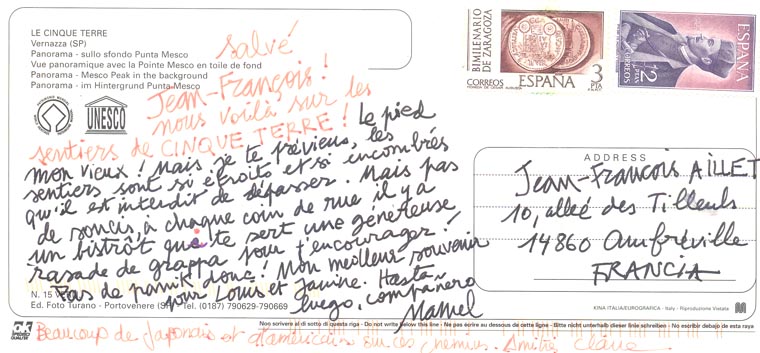 LE CINQUE TERRE
Vernazza (SP)
Panorama - sullo sfondo Punta Mesco
Vue panoramique avec la Pointe Mesco en toile de fond
Panorama - Mesco Peak in the background
Panorama - im Hintergrund Punta Mesco
UNESCO
Salvé
Jean-François !
nous voilà sur les
sentiers de CINQUE TERRE ! Le pied
mon vieux ! Mais je te préviens, les
sentiers sont si étroits et si encombrés
qu'il est interdit de dépasser. Mais pas
de soucis, à chaque coin de rue il y a
un bistrôt qui te sert une généreuse
rasade de grappa pour t'encourager !
Pas de panik donc ! Mon meilleur souvenir
pour Louis et Janine. Hasta
luego, compañero
Manuel
N. 15
Ed. Foto Turano - Portovenere (SP) - Tel. (0187) 790629-790669
BIMILENARIO DE ZARAGOZA
CORREOS
ESPAÑA
3 PTA
ESPAÑA
CORREOS
2 PTAS
ADDRESS
Jean-François AILLET
10, allée des Tilleuls
14860 Amfréville
FRANCIA
KINA ITALIA/EUROGRAFICA - Italy - Riproduzione Vietata
Non scrivere al di sotto di questa riga - Do not write below this line - Ne pas écrire au dessous de cette ligne - Bitte nicht unterhalb dieser linie schreiben - No escribir debajo de esta raya
Beaucoup de Japonais et d'américains sur ces chemins. Amitiés Claire